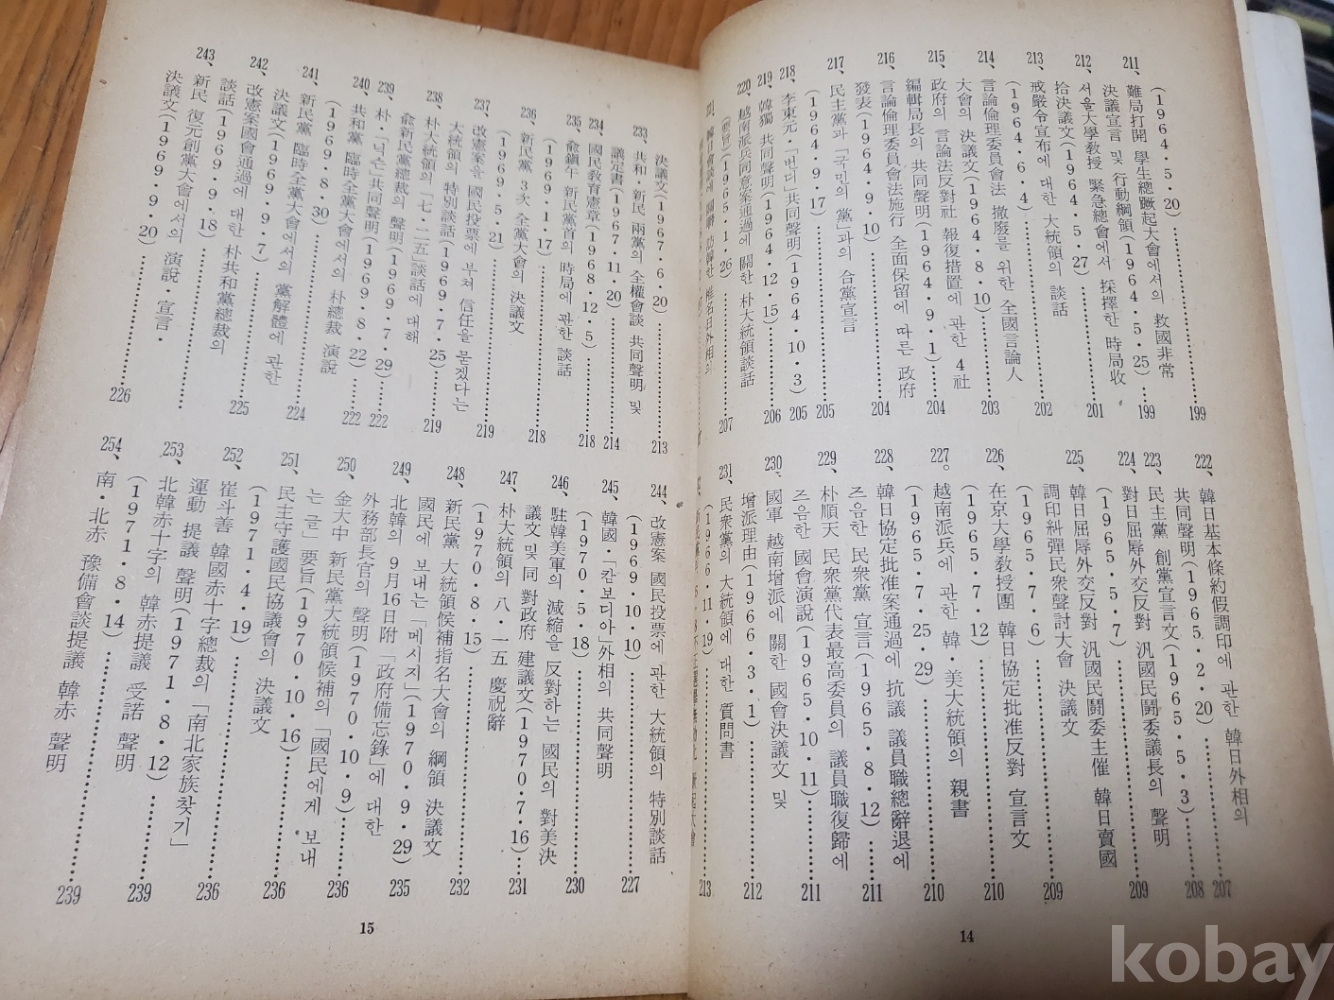 (1964·5·20)……199
211、難局打開 學生總蹶起大會에서의 救國非常
決議宣言 및 行動綱領(1964·5·25)……199
212、서울大學教授 緊急總會에서 採擇한 時局收
拾決議文(1964·5·27)……201
213、戒嚴令宣布에 대한 大統領의 談話
(1964·6·4)……202
214、言論倫理委員會法 撤廢를 위한 全國言論人
大會의 決議文(1964·8·10)……203
215、政府의 言論法反對社 報復措置에 관한 4社
編輯局長의 共同聲明(1964·9·1)……204
216、言論倫理委員會法施行 全面保留에 따른 政府
發表(1964·9·10)……204
217、民主黨과 「국민의 黨」과의 合黨宣言
(1964·9·17)……205
218、李東元·「번디」共同聲明(1964·10·3)……205
219、韓獨 共同聲明(1964·12·15)……206
220、越南派兵同意案通過에 關한 朴大統領談話
(1965·1·26)……207
椎名日外相의
222、韓日基本條約假調印에 관한 韓日外相의
共同聲明(1965·2·20)……207
223、民主黨 創黨宣言文(1965·5·3)……208
224、對日屈辱外交反對 汎國民鬪委議長의 聲明
(1965·5·7)……209
225、韓日屈辱外交反對 汎國民鬪委主催 韓日賣國
調印糾彈民衆聲討大會 決議文
(1965·7·6)……209
226、在京大學教授團 韓日協定批准反對 宣言文
(1965·7·12)……210
227。越南派兵에 관한 韓·美大統領의 親書
(1965·7·25·29)……210
228、韓日協定批准案通過에 抗議 議員職總辭退에
즈음한 民衆黨 宣言(1965·8·12)……211
229、朴順天 民衆黨代表最高委員의 議員職復歸에
즈음한 國會演說(1965·10·11)……211
230、國軍 越南增派에 關한 國會決議文 및
增派理由(1966·3·1)……212
231、民衆黨의 大統領에 대한 質問書
(1966·11·19)……213
14
決議文(1967·6·20)……213
233、共和·新民 兩黨의 全權會談 共同聲明 및
議定書(1967·11·20)……214
234、國民教育憲章(1968·12·5)……218
235、兪鎭午 新民黨首의 時局에 관한 談話
(1969·1·17)……218
236、新民黨 3次 全黨大會의 決議文
(1969·5·21)……219
237、改憲案을 國民投票에 부쳐 信任을 묻겠다는
大統領의 特別談話(1969·7·25)……219
238、朴大統領의 「七·二五」談話에 대해
兪新民黨總裁의 聲明(1969·7·29)……222
239、朴·「닉슨」共同聲明(1969·8·22)……222
240、共和黨 臨時全黨大會에서의 朴總裁 演說
(1969·8·30)……224
241、新民黨 臨時全黨大會에서의 黨解體에 관한
決議文(1969·9·7)……225
242、改憲案國會通過에 대한 朴共和黨總裁의
談話(1969·9·18)
243、新民 復元創黨大會에서의 演說 宣言·
決議文(1969·9·20)……226
244、改憲案 國民投票에 관한 大統領의 特別談話
(1969·10·10)……227
245、韓國·「캄보디아」外相의 共同聲明
(1970·5·18)……230
246、駐韓美軍의 減縮을 反對하는 國民의 對美決
議文 및 同 對政府 建議文(1970·7·16)……231
247、朴大統領의 八·一五 慶祝辭
(1970·8·15)……232
248、新民黨 大統領候補指名大會의 綱領 決議文
國民에 보내는「메시지」(1970·9·29)……235
249、北韓의 9月16日附「政府備忘錄」에 대한
外務部長官의 聲明(1970·10·9)……236
250、金大中 新民黨大統領候補의「國民에게 보내
는 글」要旨(1970·10·16)……236
251、民主守護國民協議會의 決議文
(1971·4·19)……236
252、崔斗善 韓國赤十字總裁의「南北家族찾기」
運動 提議 聲明(1971·8·12)……239
253、北韓赤十字의 韓赤提議 受諾 聲明
(1971·8·14)……239
254、南·北赤 豫備會談提議 韓赤 聲明
15
kobay